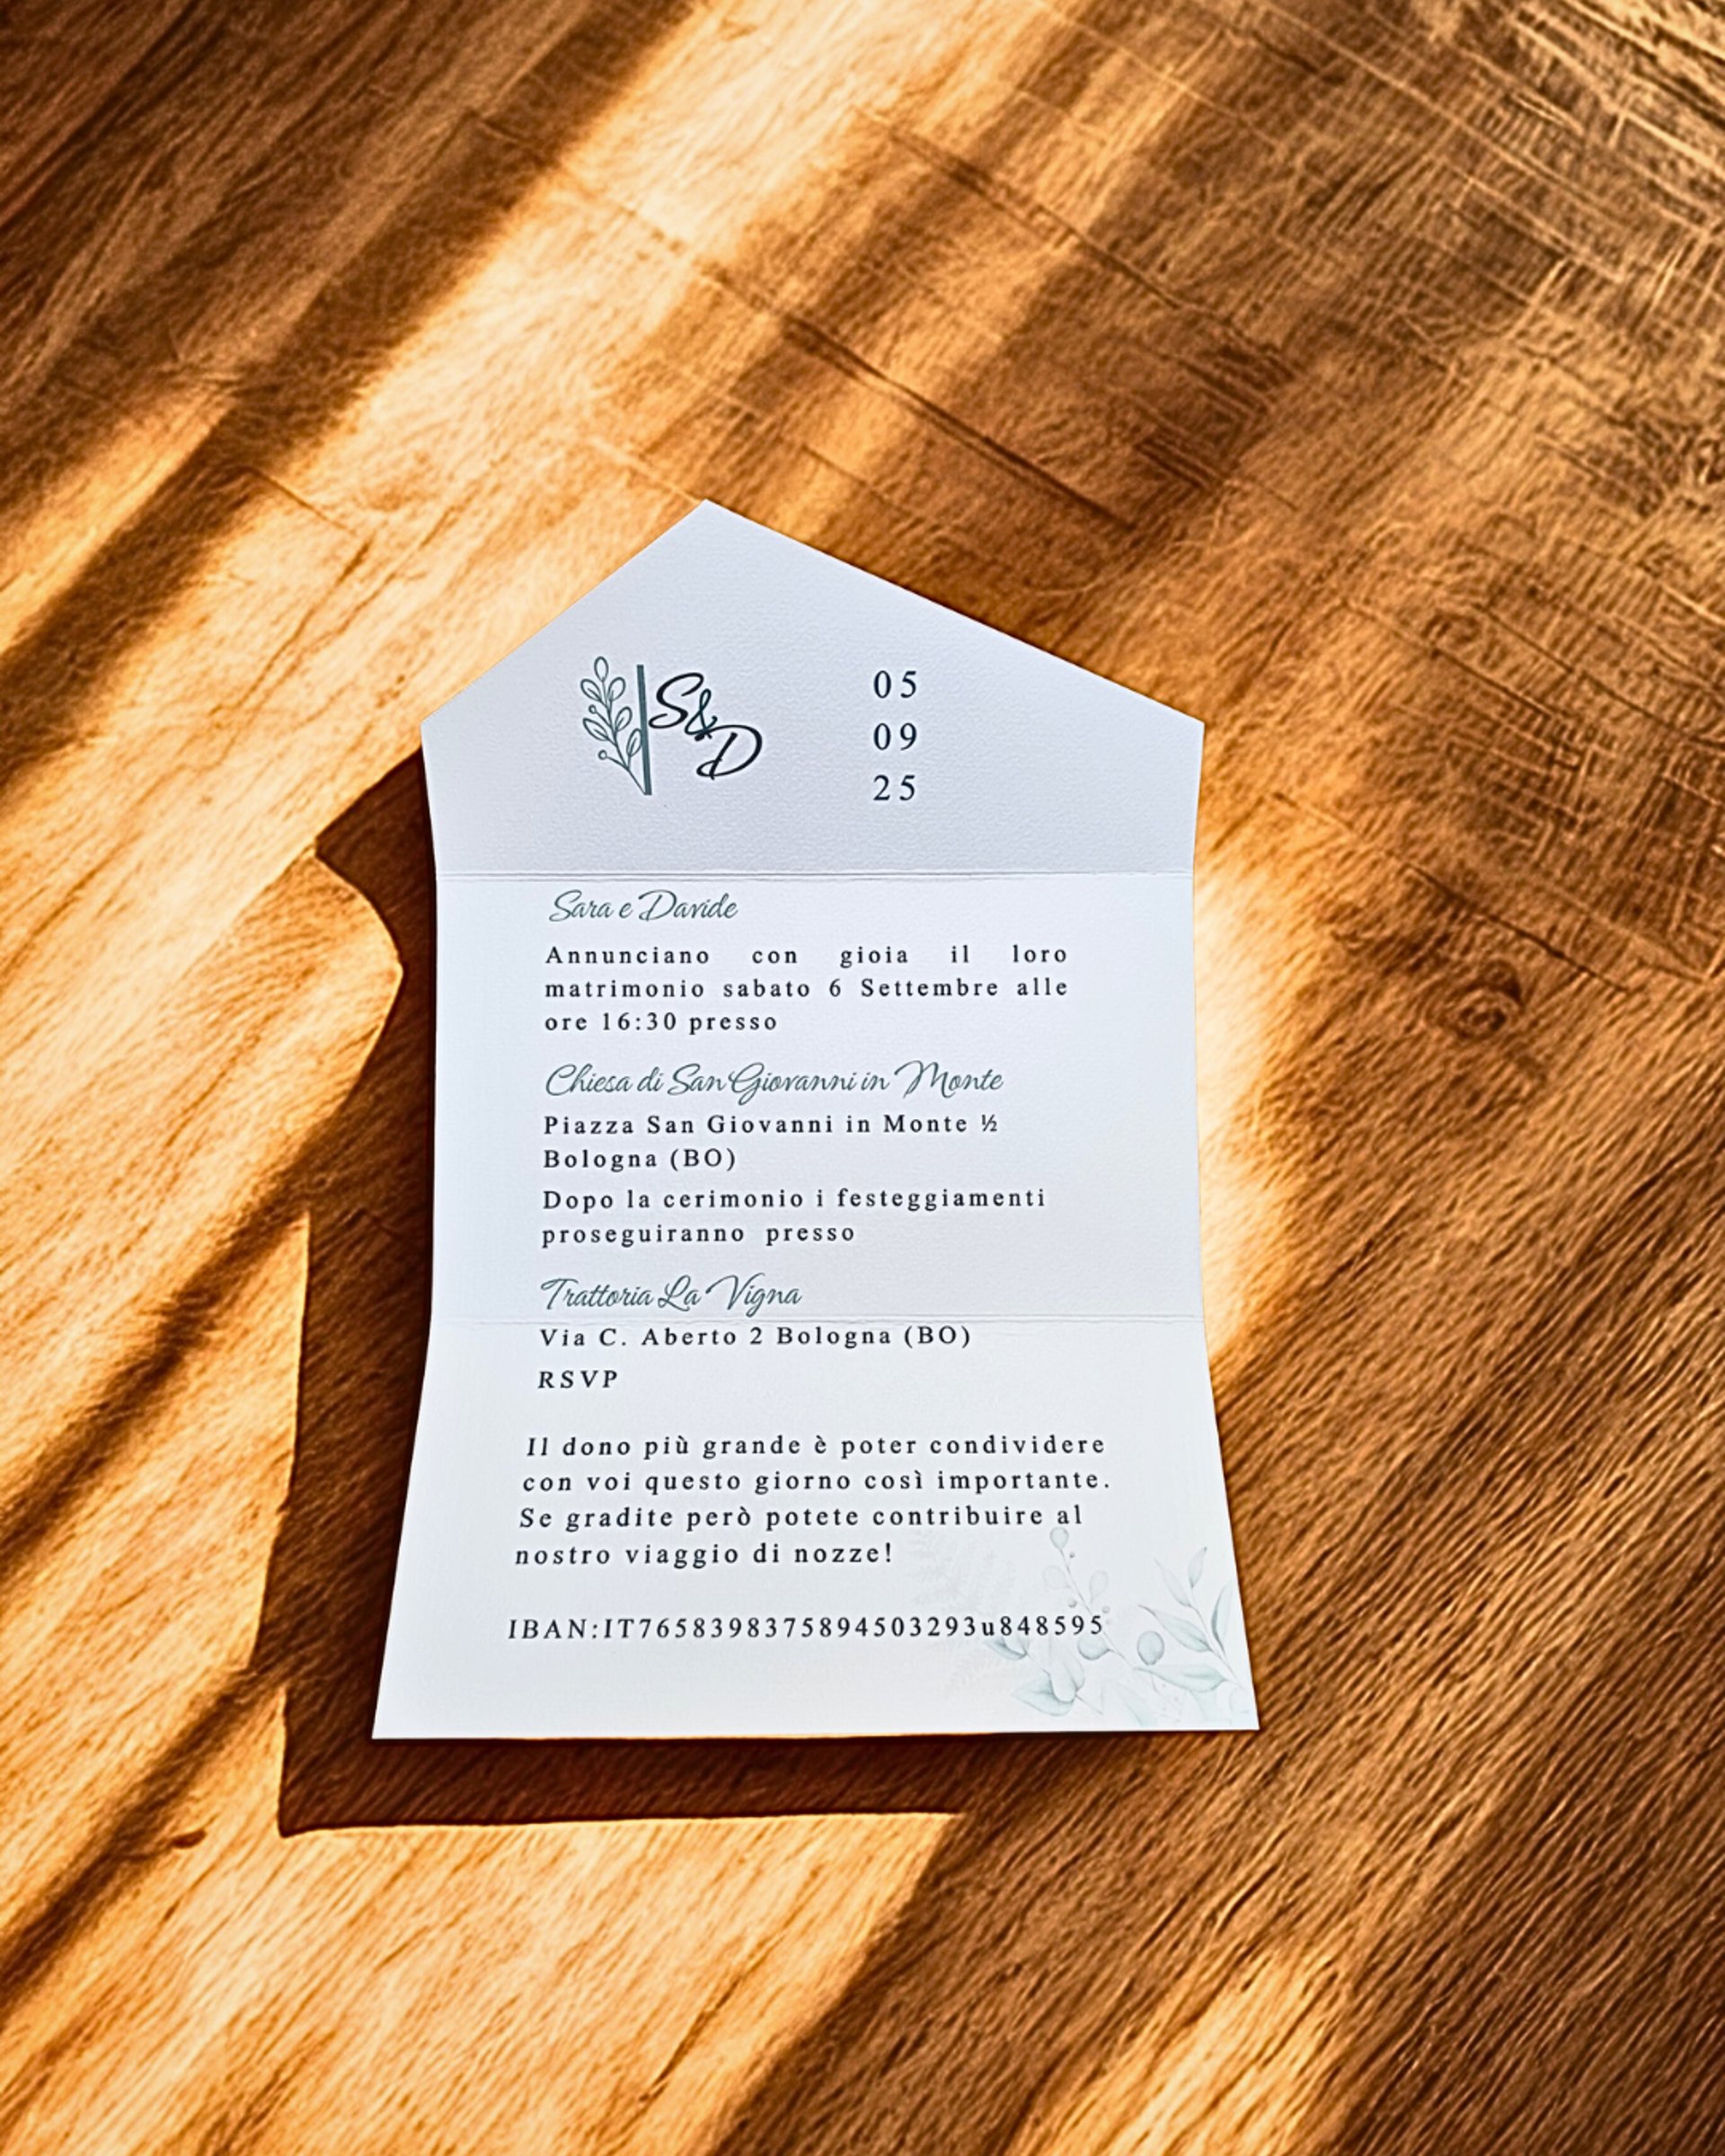 S&D
05
09
25
Sara e Davide
Annunciano con gioia il loro
matrimonio sabato 6 Settembre alle
ore 16:30 presso
Chiesa di San Giovanni in Monte
Piazza San Giovanni in Monte ½
Bologna (BO)
Dopo la cerimonio i festeggiamenti
proseguiranno presso
Trattoria La Vigna
Via C. Aberto 2 Bologna (BO)
RSVP
Il dono più grande è poter condividere
con voi questo giorno così importante.
Se gradite però potete contribuire al
nostro viaggio di nozze!
IBAN:IT7658398375894503293u848595